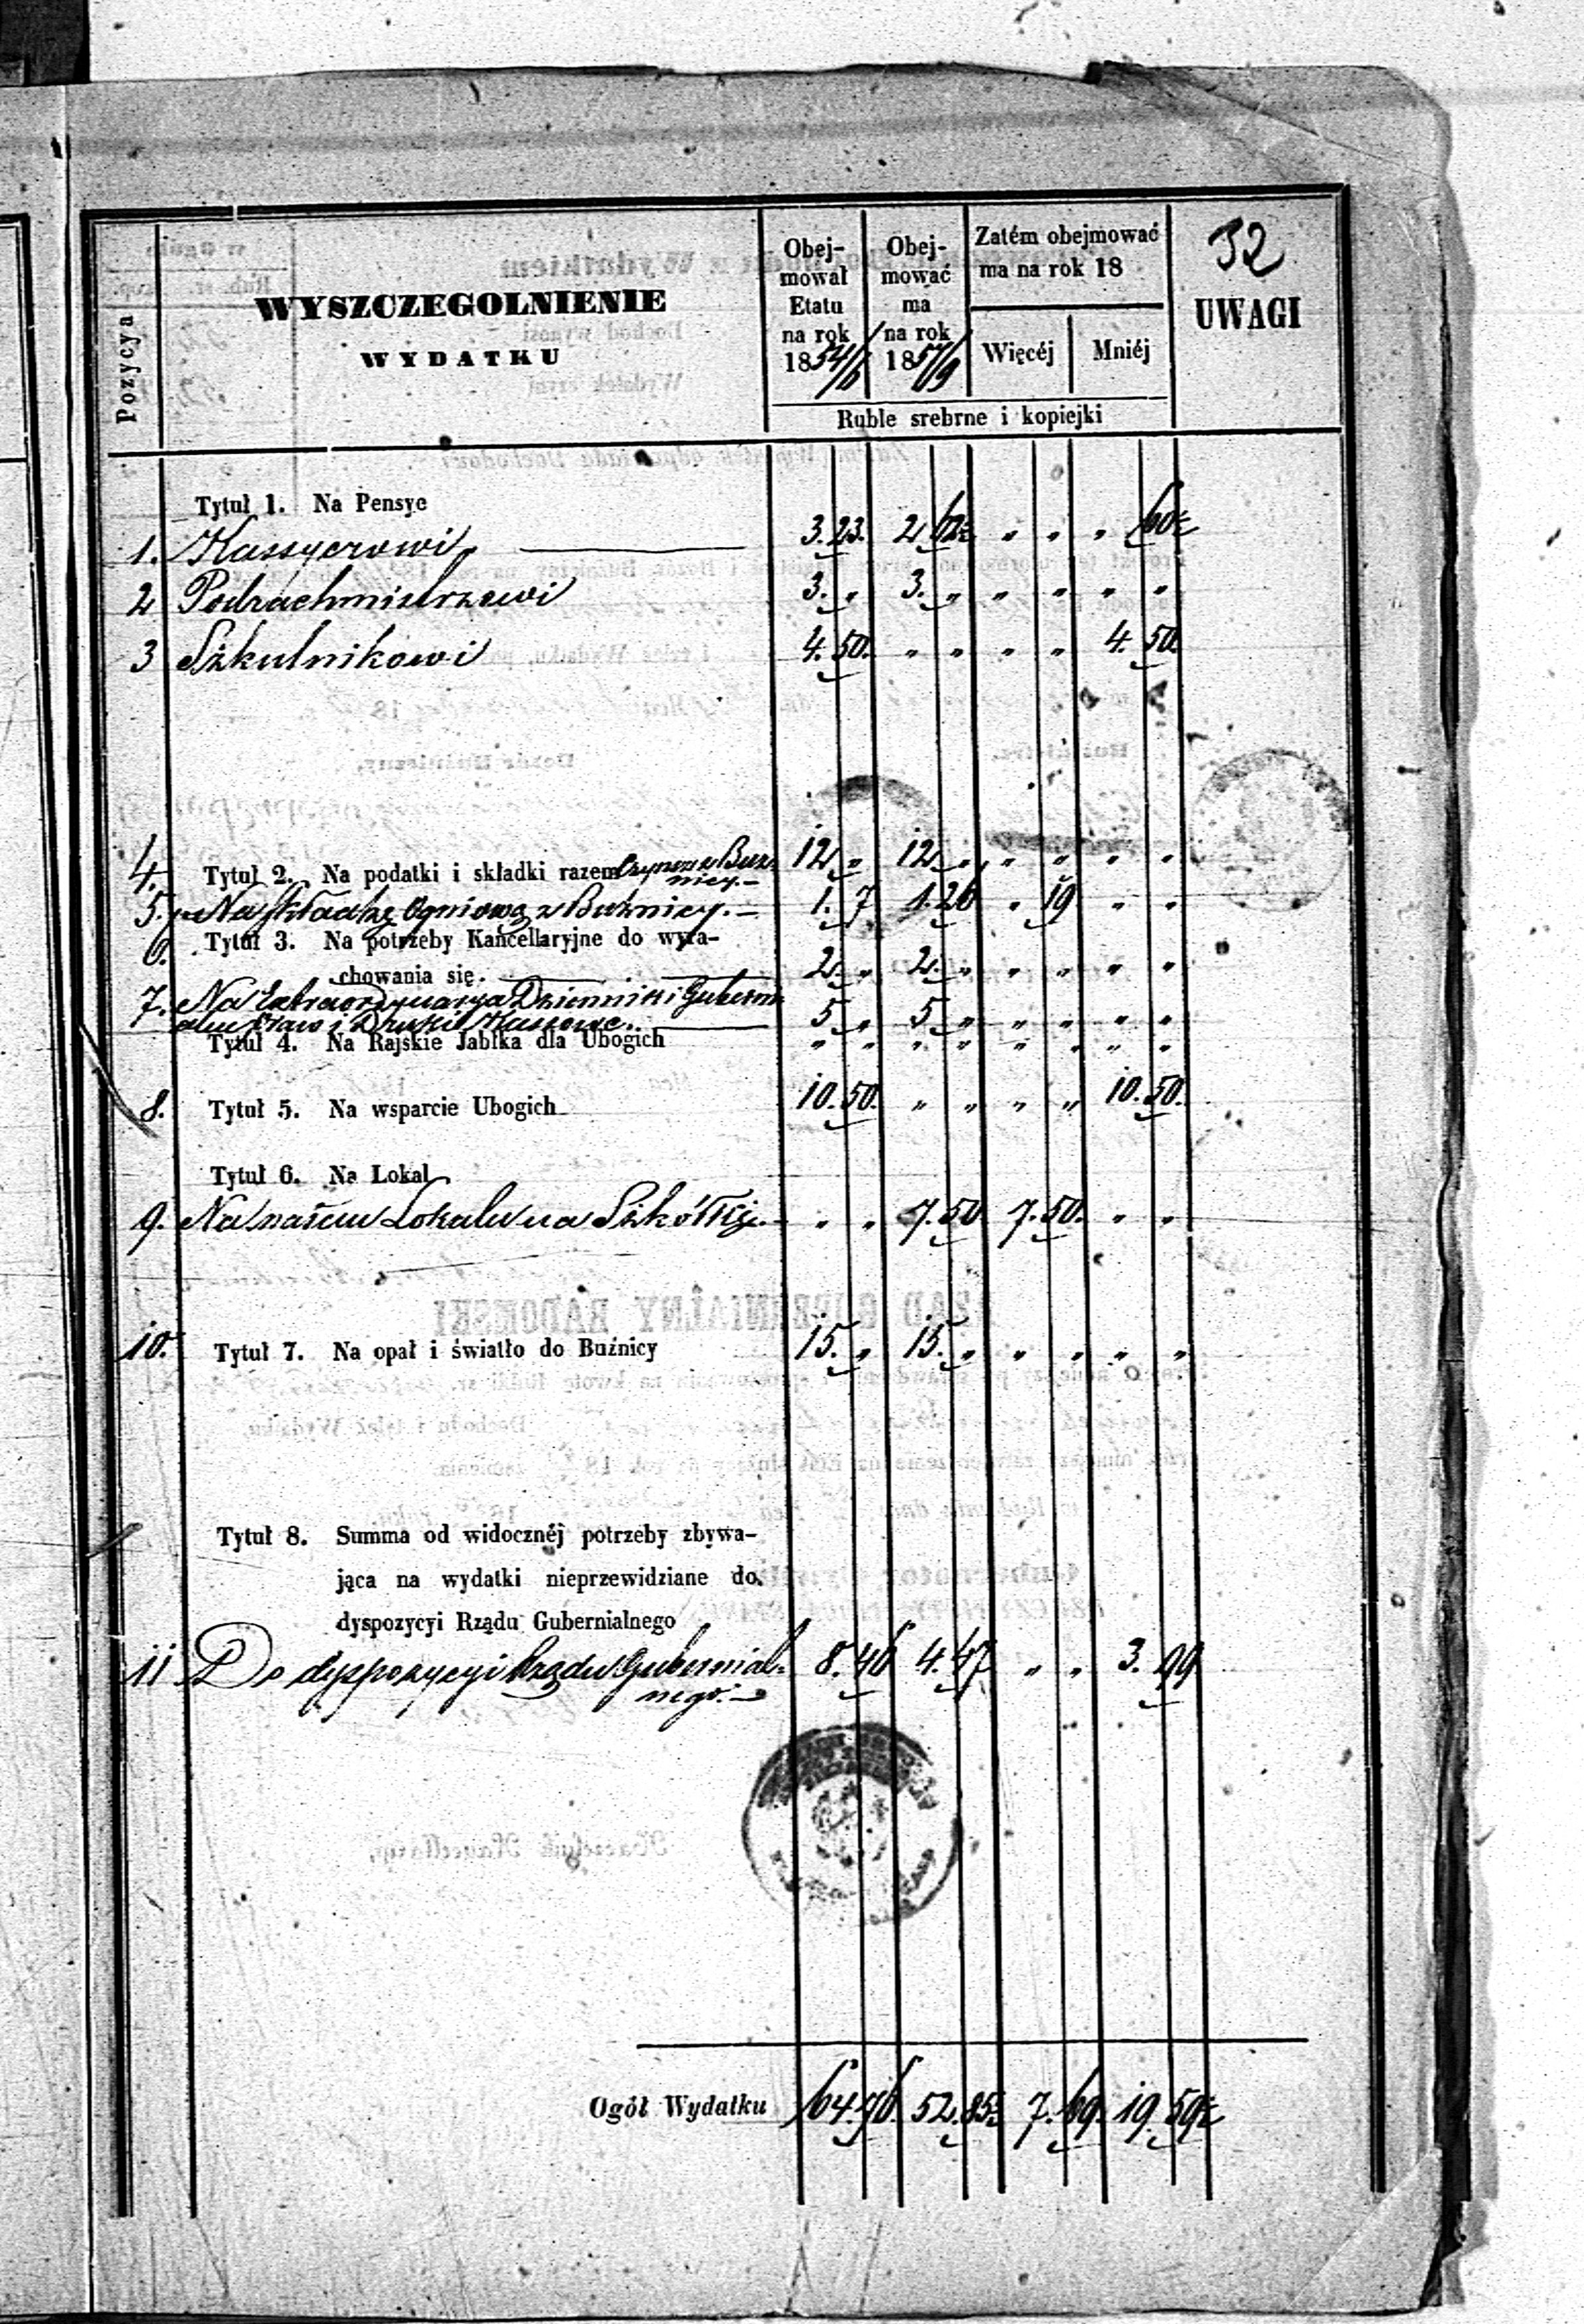 32
Pozycya
WYSZCZEGOLNIENIE
WYDATKU
Obej-
mował
Etatu
na rok
1854/6
Obej-
mować
ma
na rok
1857/9
Zatém obejmować
ma na rok 18
Więcéj Mniéj
UWAGI
Ruble srebrne i kopiejki
Tytuł 1. Na Pensye
1. Kassyerowi 3. 23. 2 62½ " " " 60½
2 Podrachmistrzowi 3. " 3. " " " " "
3 Szkulnikowi 4. 50. " " " " 4. 50.
4. Tytuł 2. Na podatki i składki razem Czynsz z Buź-
nicy. 12 " 12 " " " " "
5. Na składkę Ogniową z Bużnicy. 1. 7 1. 26 " 19 " "
6. Tytuł 3. Na potrzeby Kancellaryjne do wyra-
chowania się. 2. " 2. " " " " "
7. Na Extraordynarya Dzienniki Guberni
alne Praw i Druki Kassowe. 5 " 5 " " " " "
Tytuł 4. Na Rajskie Jabłka dla Ubogich " " " " " " " "
8. Tytuł 5. Na wsparcie Ubogich 10. 50. " " " " 10. 50.
Tytuł 6. Na Lokal
9. Na naiem Lokalu na Szkółkę. " " 7. 50 7. 50. " "
10. Tytuł 7. Na opał i światło do Buźnicy 15. " 15. " " " " "
Tytuł 8. Summa od widocznéj potrzeby zbywa-
jąca na wydatki nieprzewidziane do
dyspozycyi Rządu Gubernialnego
11 Do dyspozycyi Rządu Gubernial-
nego. 8. 46 4. 47 " " 3. 99
Ogół Wydatku 64. 76. 52. 85½ 7. 69. 19. 59½